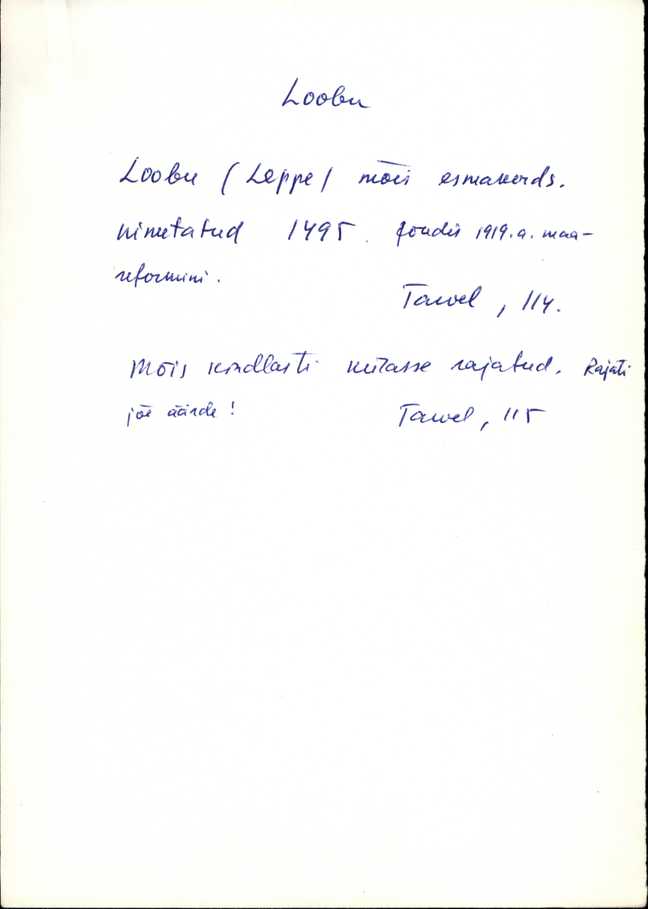 Loobu
Loobu (Leppe) mõis esmakords.
nimetatud 1495. 1919.a. maa-
reformini.
Tarvel, 114.
Mõis kindlasti külasse rajatud. Rajati
jõe äärde!
Tarvel, 115